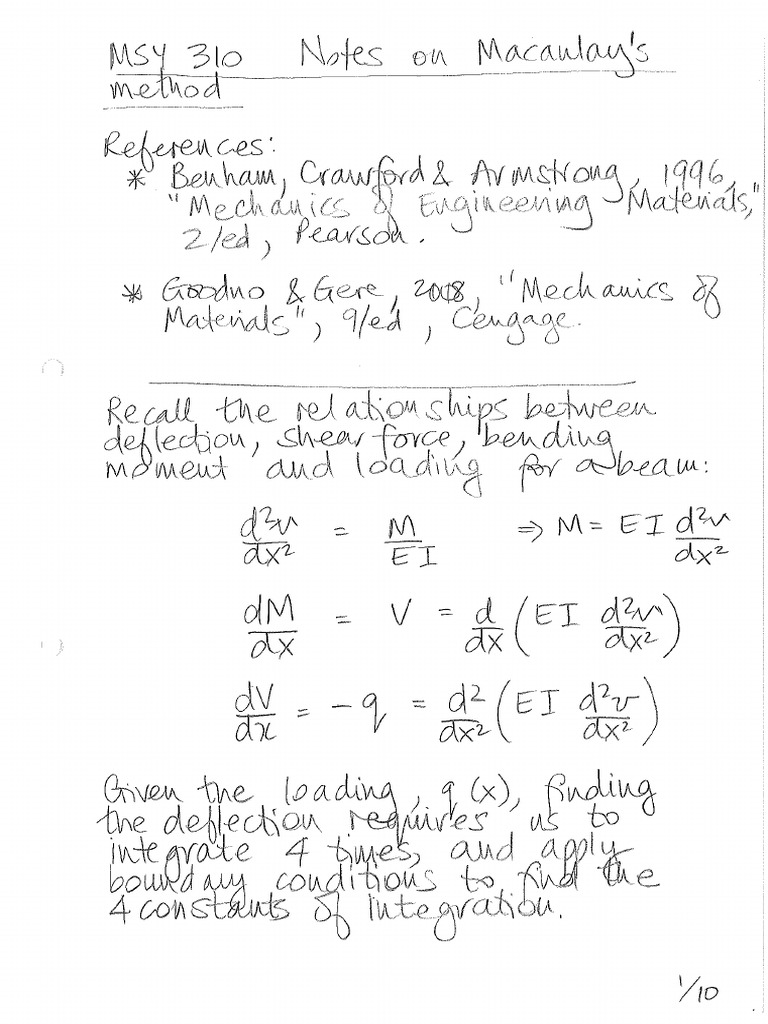 MSY 310 Notes on Macaulay's
method
References:
* Benham, Crawford & Armstrong, 1996,
"Mechanics of Engineering Materials,"
2/ed, Pearson.
* Goodno & Gere, 2018, "Mechanics of
Materials", 9/ed, Cengage.
Recall the relationships between
deflection, shear force, bending
moment and loading for a beam:
d²v/dx² = M/EI ⇒ M = EI d²v/dx²
dM/dx = V = d/dx (EI d²v/dx²)
dV/dx = -q = d²/dx² (EI d²v/dx²)
Given the loading, q(x), finding
the deflection requires us to
integrate 4 times, and apply
boundary conditions to find the
4 constants of integration.
1/10